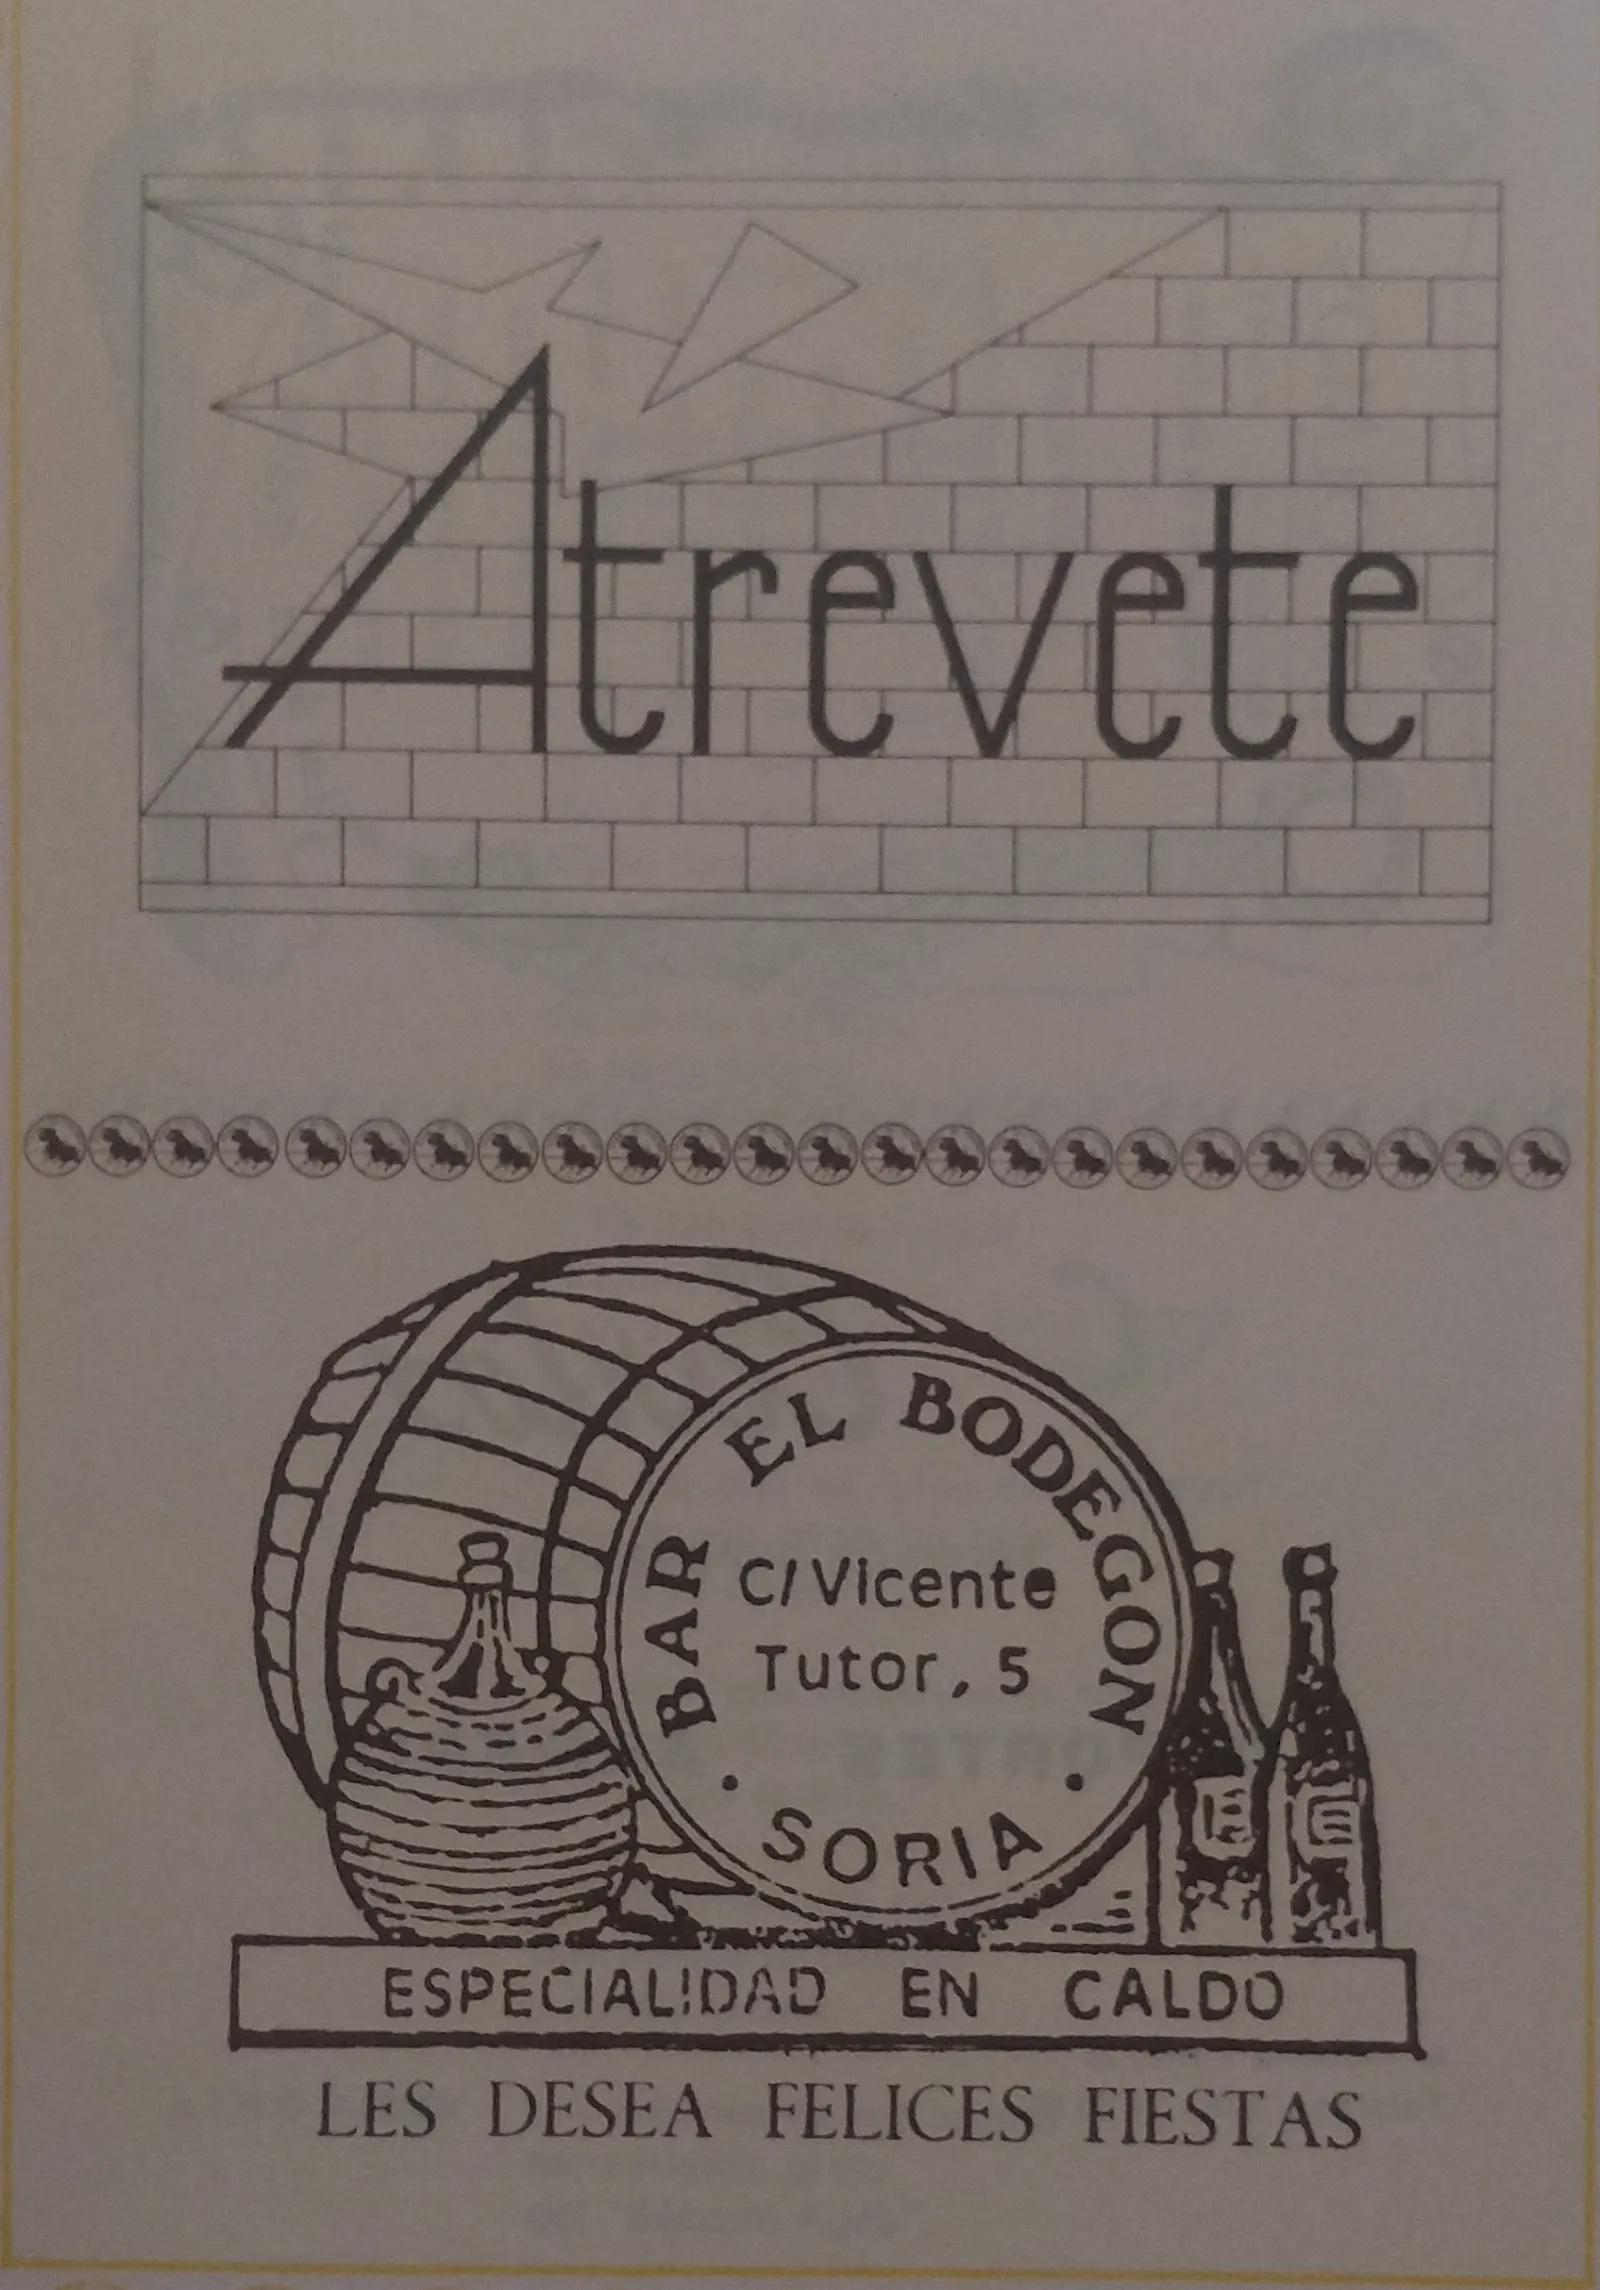 Atrevete
BAR EL BODEGON
C/Vicente
Tutor, 5
SORIA
ESPECIALIDAD EN CALDO
LES DESEA FELICES FIESTAS